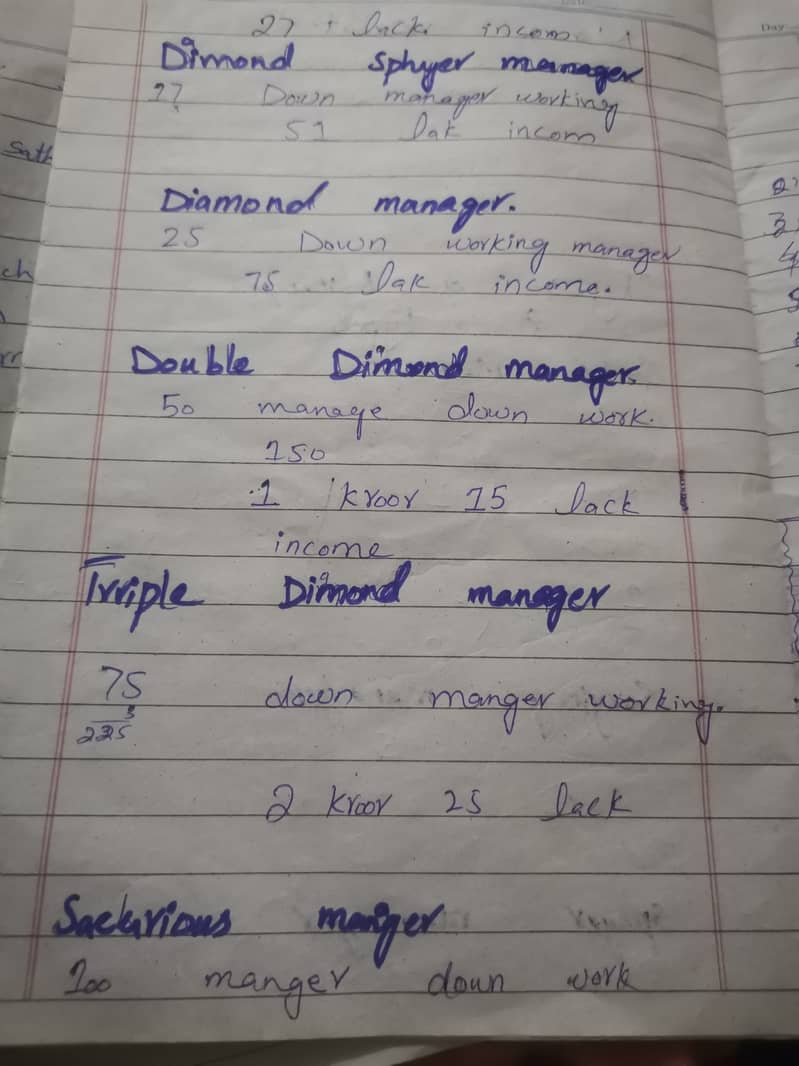 27 lack incom
Dimond sphyer manager
17 Down manager working
51 lak incom
Diamond manager.
25 Down working manager
75 lak income.
Double Dimond manager.
50 manage down work.
150
1 kroor 15 lack
income
Trriple Dimond manager
75 down manger working.
3
225
2 kroor 25 lack
manger
100 manger down work
Sath
ch
Day